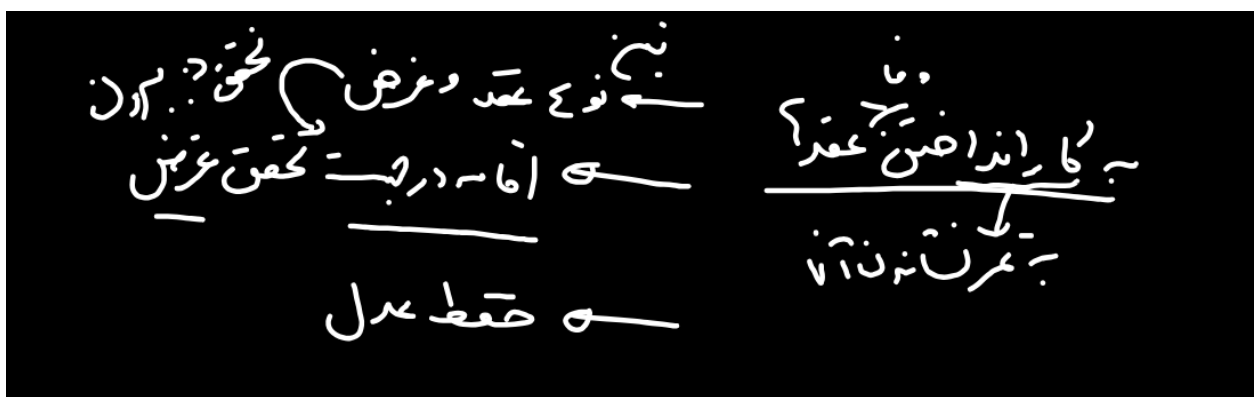 وفا
به کار انداختن عقد؟
به ثمر نشاندن آن
تبیین
نوع عقد و غرض
اقامه در جهت تحقق غرض
حفظ عدل